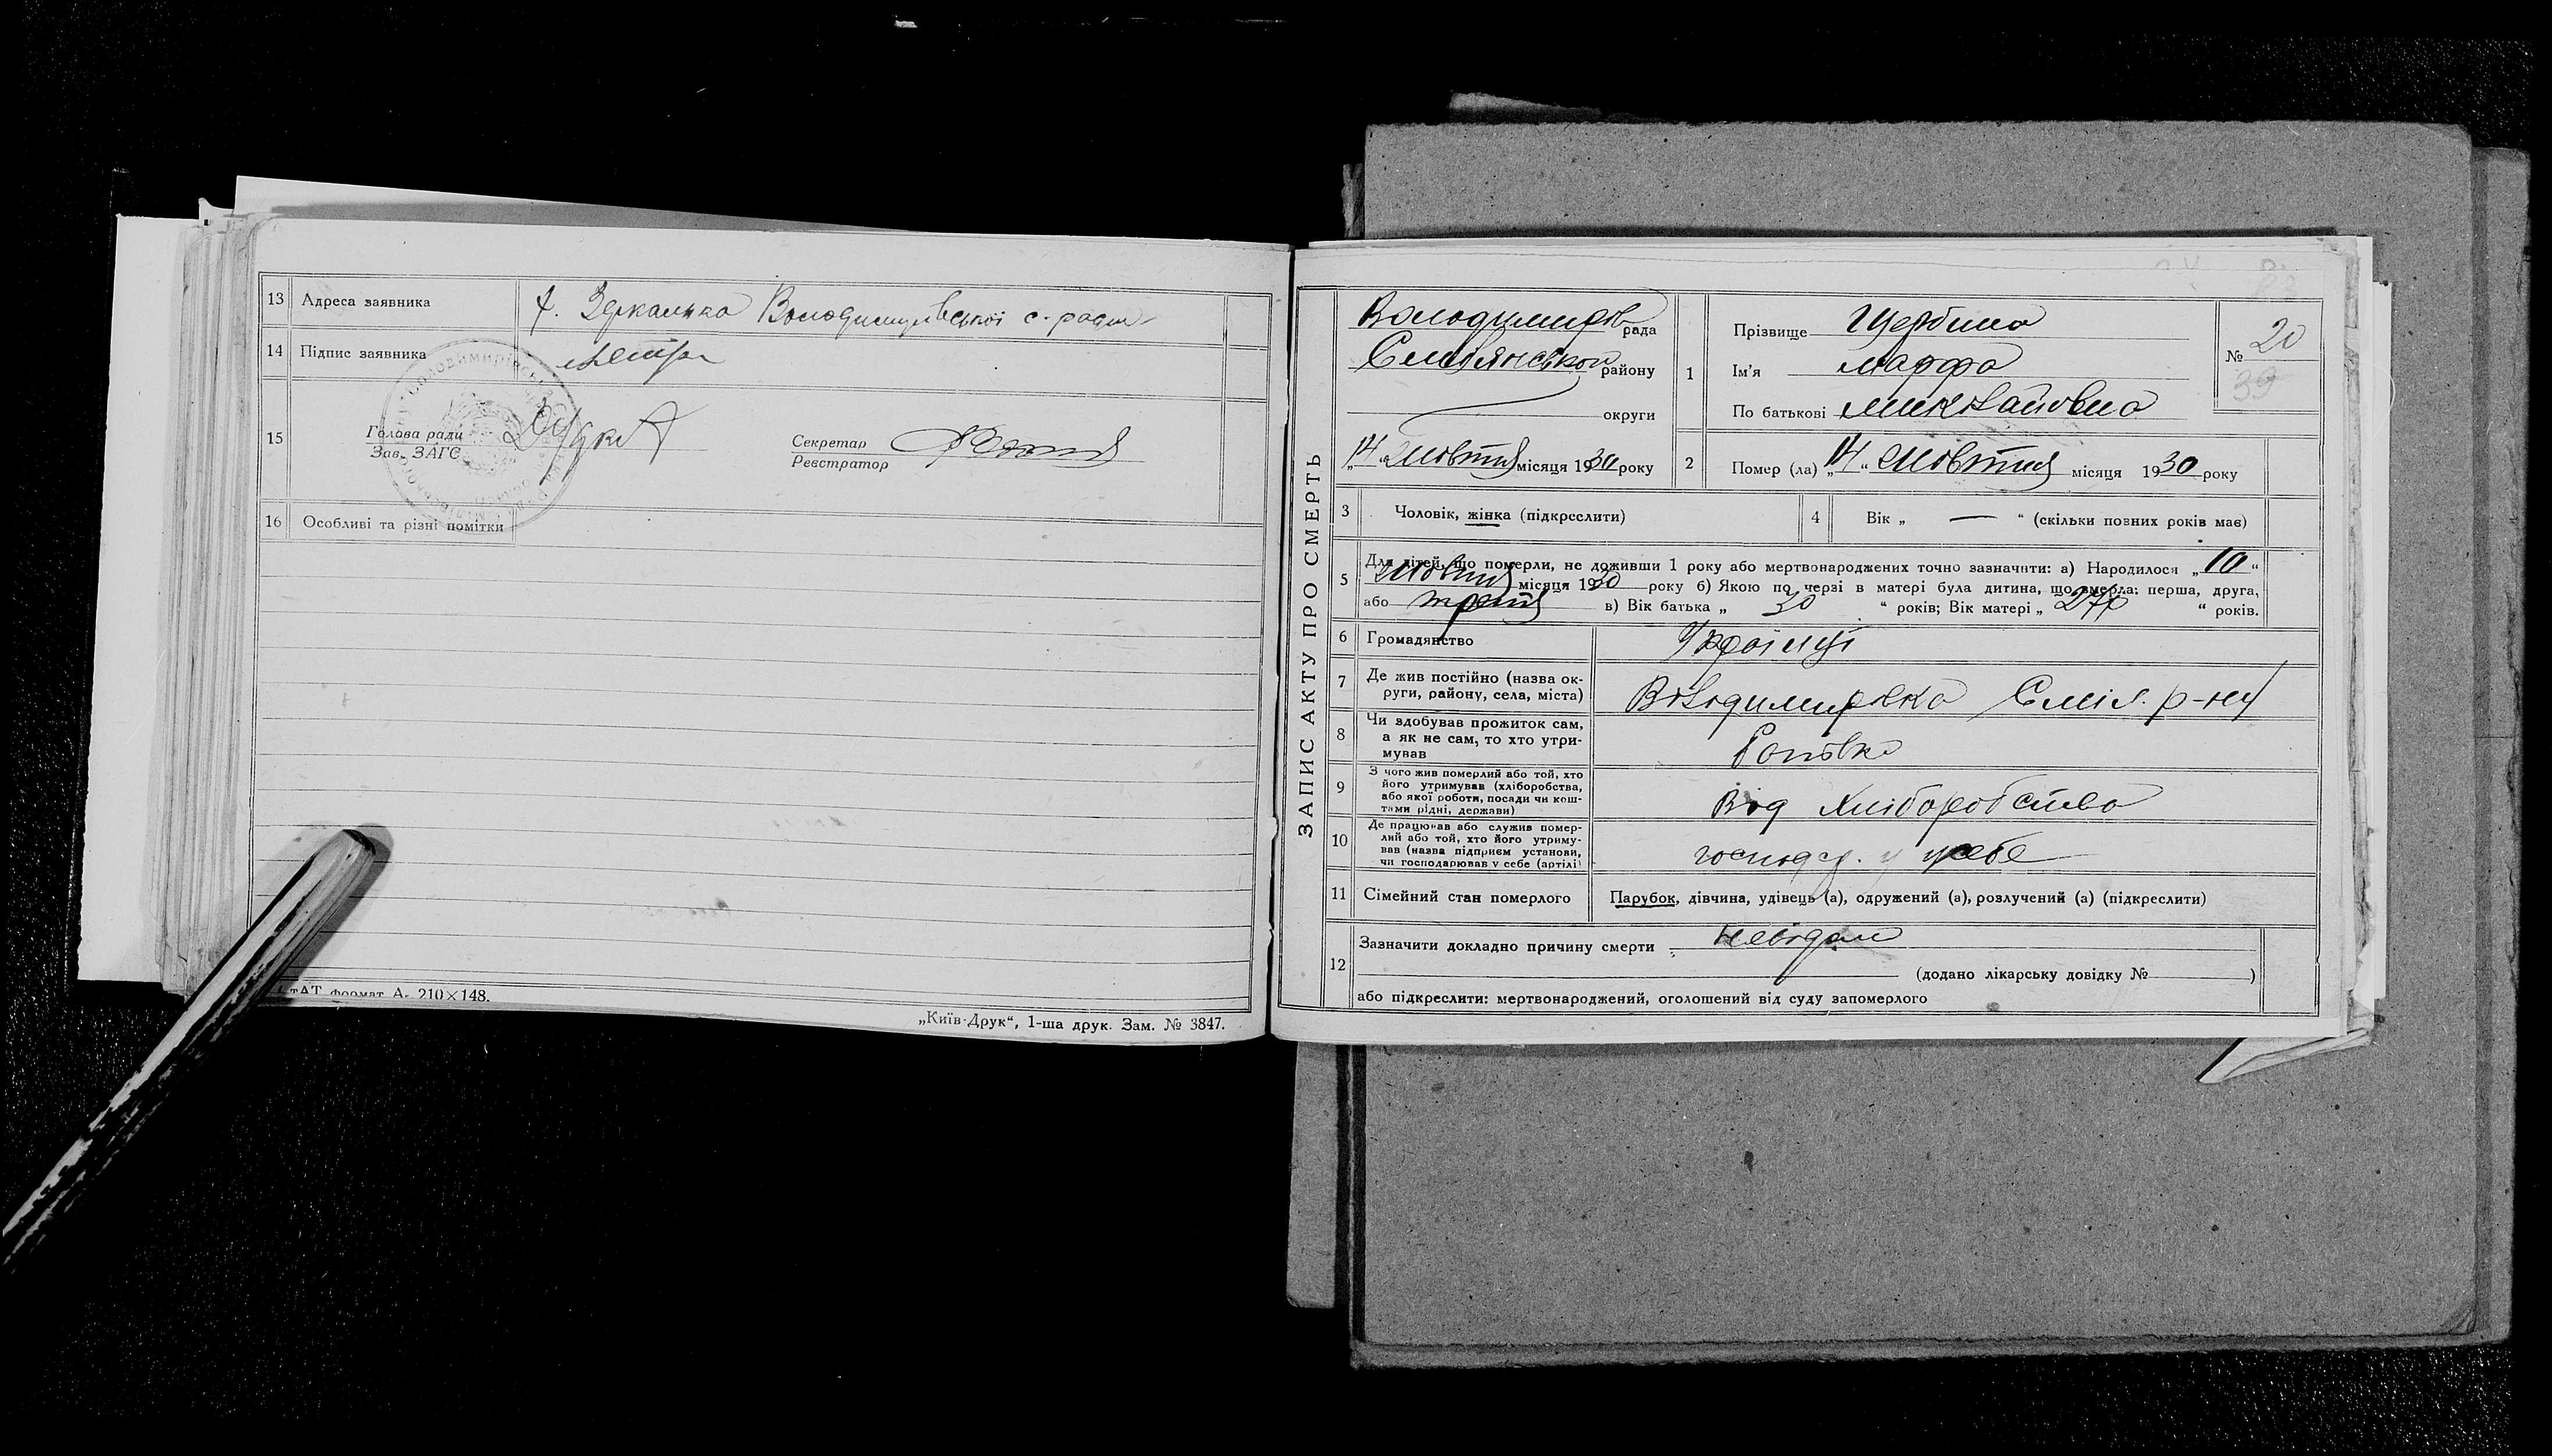 13 Адреса заявника Володимирівської с-ради
14 Підпис заявника
15 Голова ради
Зав. ЗАГС
Секретар
Реєстратор
16 Особливі та різні помітки
формат А₅ 210×148.
„Київ-Друк“, 1-ша друк. Зам. № 3847.
ЗАПИС АКТУ ПРО СМЕРТЬ
Володимирів рада
Смілянської району
округи
„14“ жовтня місяця 1930 року
1 Прізвище Щербина
Ім'я Марфа
По батькові Миколаївна
№ 20
39
2 Помер (ла) „14“ жовтня місяця 1930 року
3 Чоловік, жінка (підкреслити)
4 Вік „ — “ (скільки повних років має)
5 Для дітей, що померли, не доживши 1 року або мертвонароджених точно зазначити: а) Народилося „10“
жовтня місяця 1930 року б) Якою по черзі в матері була дитина, що вмерла: перша, друга,
або третя в) Вік батька „ 30 “ років; Вік матері „ “ років.
6 Громадянство Українці
7 Де жив постійно (назва ок-
руги, району, села, міста) Володимирівка Сміл. р-ну
8 Чи здобував прожиток сам,
а як не сам, то хто утри-
мував
9 З чого жив померлий або той, хто
його утримував (хліборобства,
або якої роботи, посади чи кош-
тами рідні, держави) Від Хліборобства
10 Де працював або служив помер-
лий або той, хто його утриму-
вав (назва підприєм установи,
чи господарював у себе (артілі) господ. у себе
11 Сімейний стан померлого Парубок, дівчина, удівець (а), одружений (а), розлучений (а) (підкреслити)
12 Зазначити докладно причину смерти невідомо
(додано лікарську довідку № )
або підкреслити: мертвонароджений, оголошений від суду запомерлого